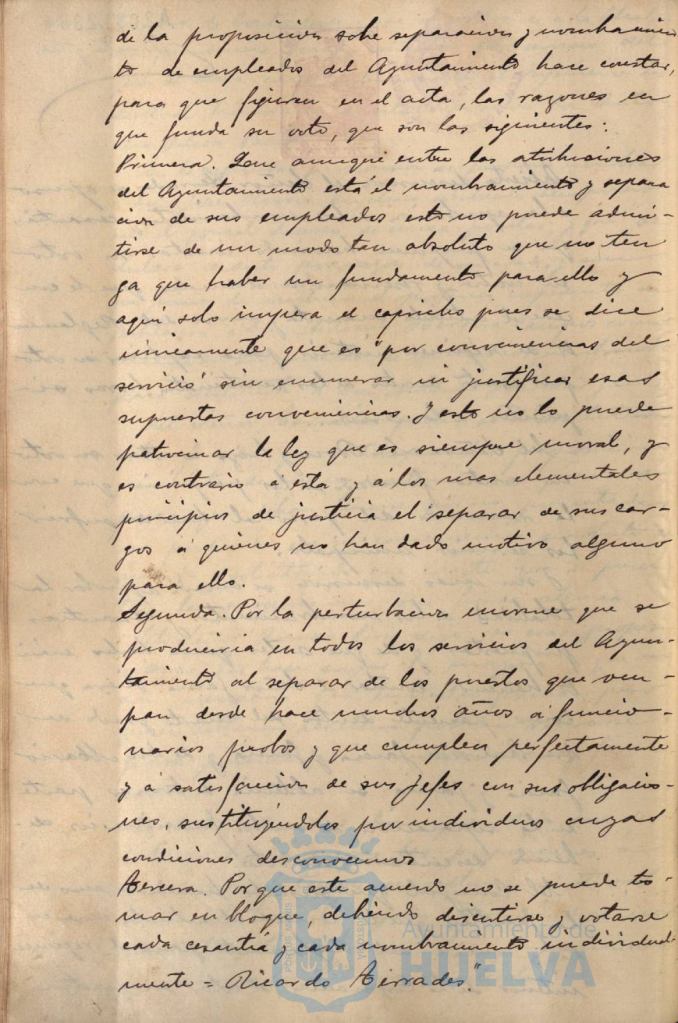 de la proposición sobre separación y nombramien
to de empleados del Ayuntamiento hace constar,
para que figuren en el acta, las razones en
que funda su voto, que son las siguientes:
Primera. Que aunque entre las atribuciones
del Ayuntamiento está el nombramiento y separa
ción de sus empleados esto no puede admi-
tirse de un modo tan absoluto que no ten
ga que haber un fundamento para ello y
aquí solo impera el capricho pues se dice
únicamente que es "por conveniencias del
servicio" sin enumerar ni justificar esas
supuestas conveniencias. Y esto no lo puede
patrocinar la ley que es siempre moral, y
es contrario á esta y á los mas elementales
principios de justicia el separar de sus car-
gos á quienes no han dado motivo alguno
para ello.
Segunda. Por la perturbación enorme que se
produciria en todos los servicios del Ayun-
tamiento al separar de los puestos que ocu-
pan desde hace muchos años á funcio-
narios probos y que cumplen perfectamente
y á satisfacción de sus Jefes con sus obligacio-
nes, sustituyéndolos por individuos cuyas
condiciones desconocemos
Tercera. Por que este acuerdo no se puede to-
mar en bloque, debiendo discutirse y votarse
cada cesantía y cada nombramiento individual-
mente = Ricardo Terrades."
Ayuntamiento de
HUELVA